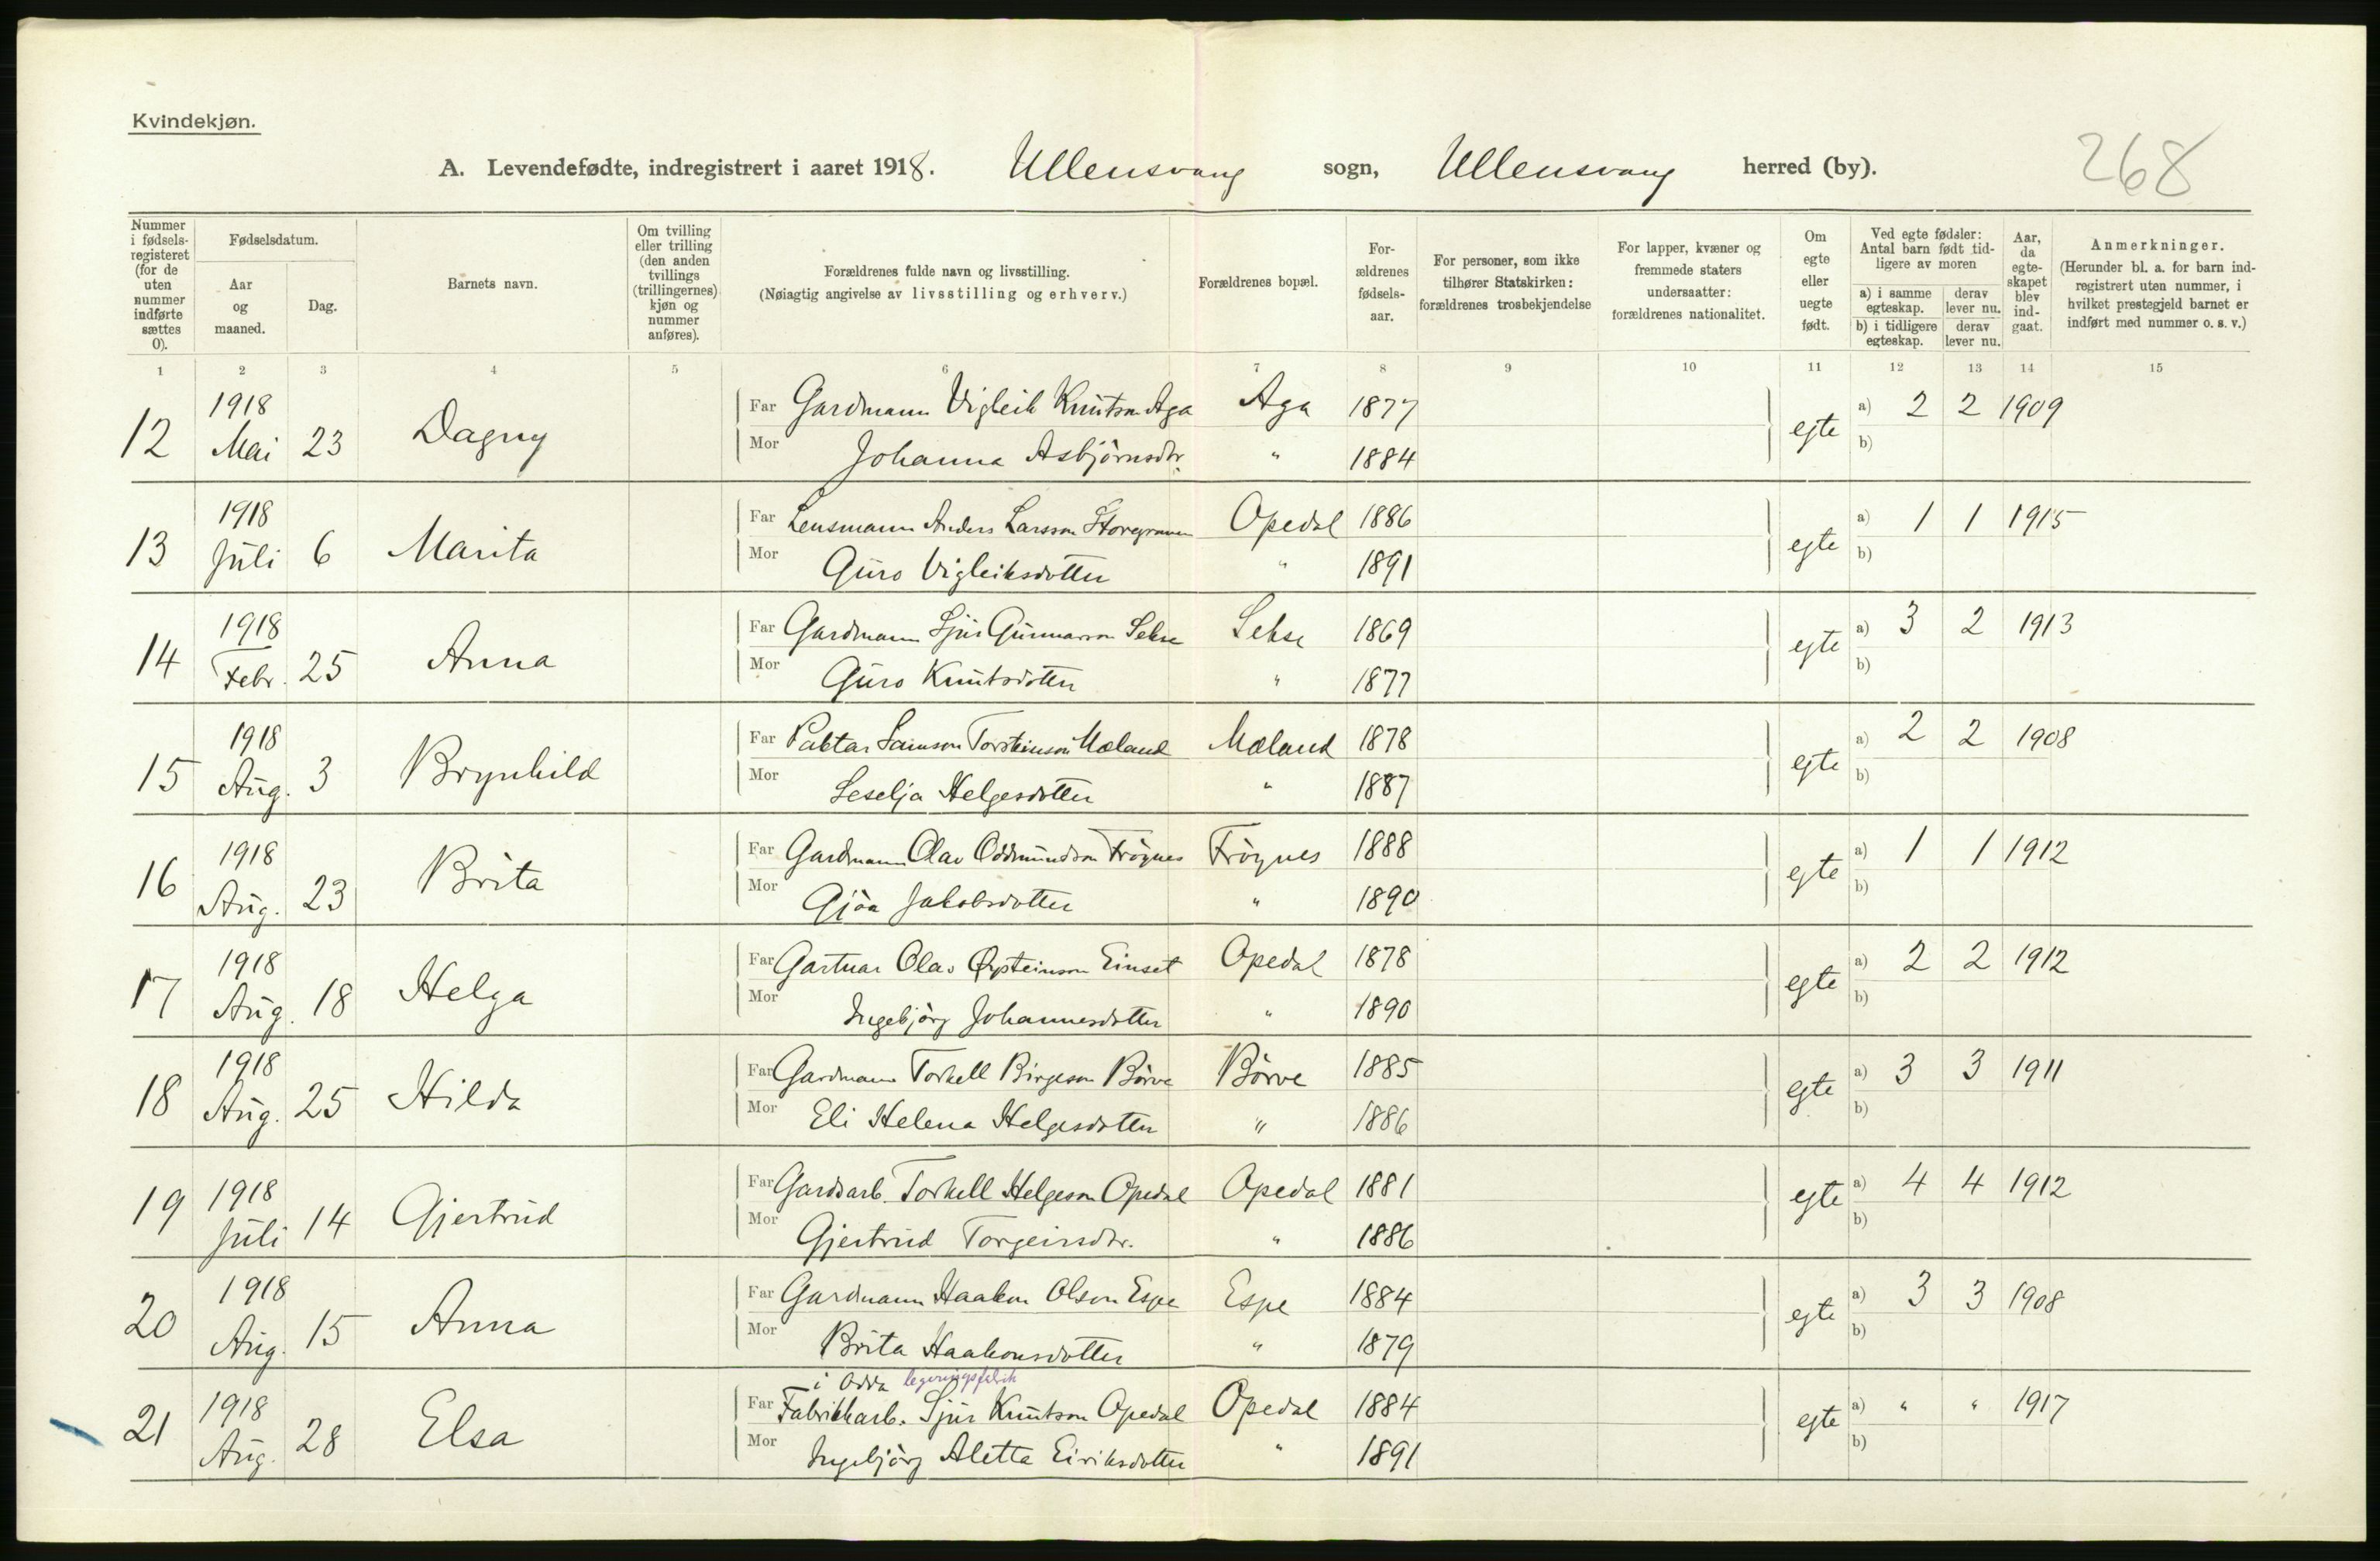 Kvindekjøn.
A. Levendefødte, indregistrert i aaret 1918. Ullensvang sogn, Ullensvang herred (by). 268
Nummer i fødselsregisteret (for de uten nummer indførte sættes 0).
Fødselsdatum.
Aar og maaned.
Dag.
Barnets navn.
Om tvilling eller trilling (den anden tvillings (trillingernes) kjøn og nummer anføres).
Forældrenes fulde navn og livsstilling.
(Nøiagtig angivelse av livsstilling og erhverv.)
Forældrenes bopæl.
Forældrenes fødselsaar.
For personer, som ikke tilhører Statskirken: forældrenes trosbekjendelse
For lapper, kvæner og fremmede staters undersaatter: forældrenes nationalitet.
Om egte eller uegte født.
Ved egte fødsler: Antal barn født tidligere av moren
a) i samme egteskap.
derav lever nu.
b) i tidligere egteskap.
derav lever nu.
Aar, da egteskapet blev indgaat.
Anmerkninger.
(Herunder bl. a. for barn indregistrert uten nummer, i hvilket prestegjeld barnet er indført med nummer o. s. v.)
1 2 3 4 5 6 7 8 9 10 11 12 13 14 15
12 1918 Mai 23 Dagny Far Gardmann Vigleik Knutson Aga Aga 1877 egte a) 2 2 1909
Mor Johanna Asbjörnsdtr. " 1884 b)
13 1918 Juli 6 Marita Far Lensmann Anders Larsson Opedal 1886 egte a) 1 1 1915
Mor Guro Vigleiksdotter " 1891 b)
14 1918 Febr. 25 Anna Far Gardmann Sjur Gunnarson Sekse Sekse 1869 egte a) 3 2 1913
Mor Guro Knutsdotter " 1877 b)
15 1918 Aug. 3 Brynhild Far Paktar Samson Torsteinson Mæland Mæland 1878 egte a) 2 2 1908
Mor Seselja Helgesdotter " 1887 b)
16 1918 Aug. 23 Brita Far Gardmann Olav Oddmundson Fröynes Fröynes 1888 egte a) 1 1 1912
Mor Gjöa Jakobsdotter " 1890 b)
17 1918 Aug. 18 Helga Far Gartnar Olav Øysteinson Einset Opedal 1878 egte a) 2 2 1912
Mor Ingebjörg Johannesdotter " 1890 b)
18 1918 Aug. 25 Hilda Far Gardmann Torkell Birgeson Börve Börve 1885 egte a) 3 3 1911
Mor Eli Helena Helgesdotter " 1886 b)
19 1918 Juli 14 Gjertrud Far Gardsarb. Torkell Helgeson Opedal Opedal 1881 egte a) 4 4 1912
Mor Gjertrud Torgeirsdtr. " 1886 b)
20 1918 Aug. 15 Anna Far Gardmann Haakon Olson Espe Espe 1884 egte a) 3 3 1908
Mor Brita Haakonsdotter " 1879 b)
i Odda legeringsfabrik
21 1918 Aug. 28 Elsa Far Fabrikkarb. Sjur Knutson Opedal Opedal 1884 egte a) " " 1917
Mor Ingebjörg Aletta Eiriksdotter " 1891 b)